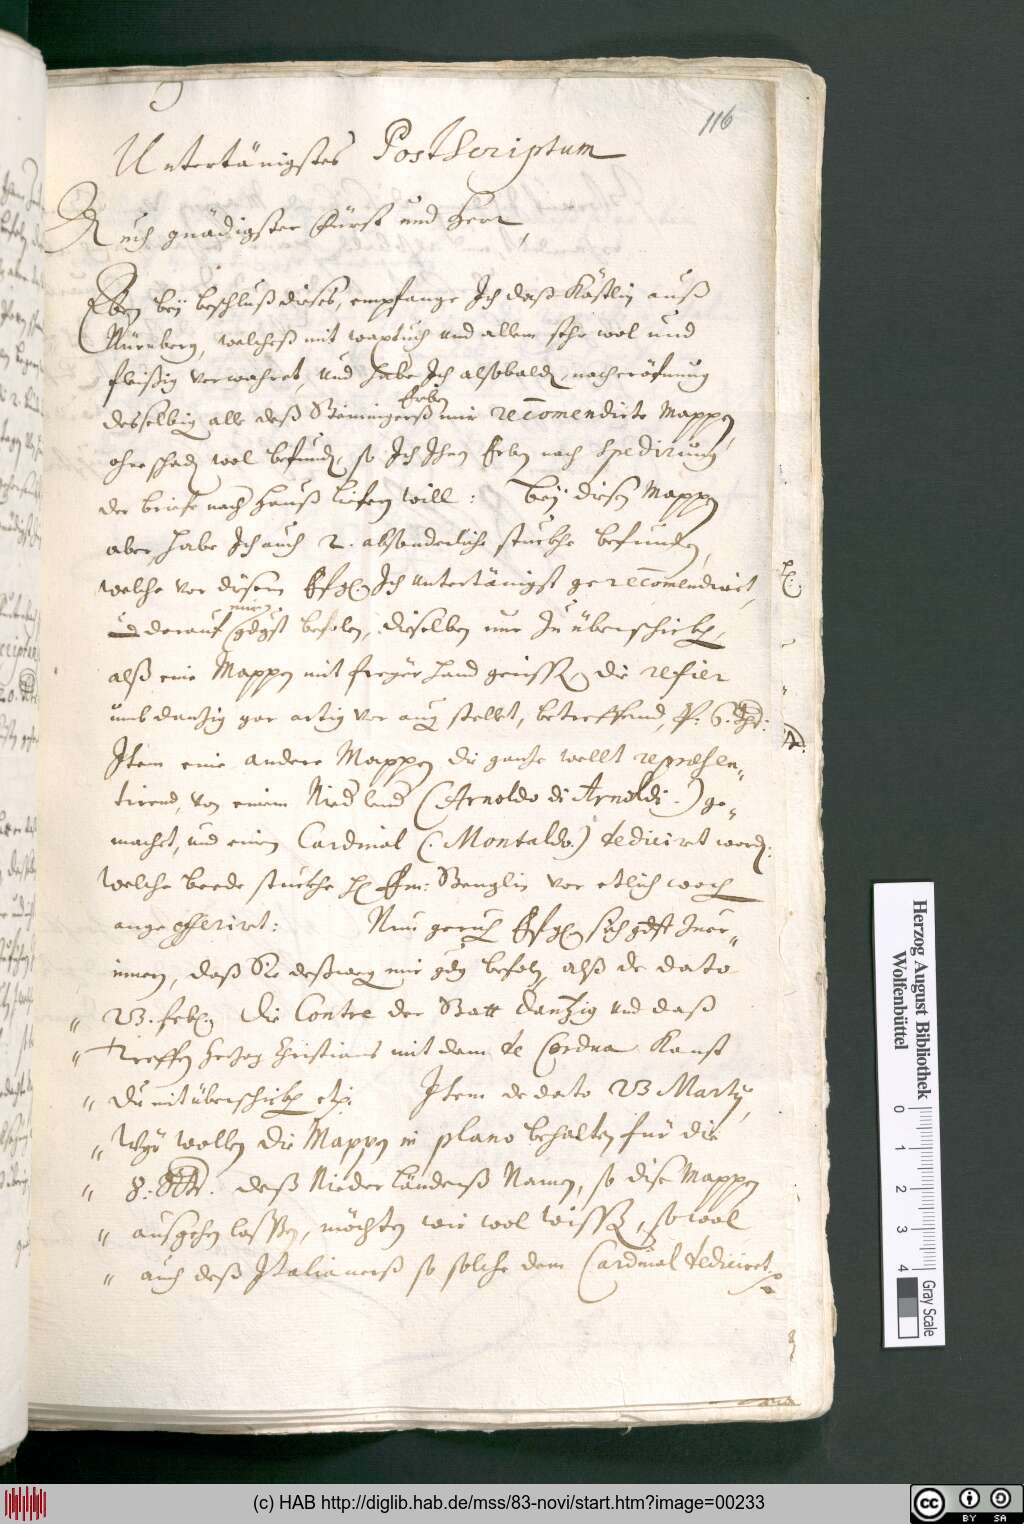 116
Untertänigstes PostScriptum
Auch gnädigster Fürst und Herr,
Eben beÿ beschluß dieses, empfange Ich daß Kästlin auß
Nürnberg, welcheß mit waxtuch und allem sehr wol und
fleißig verwahret, und habe Ich alsobald, nach eröfnung
desselbig alle deß Steiningerß Erben mir recomendirte Mappen,
ohne schad wol befund, so Ich Ihnen Erben nach Spedirung
der briefe nach Hauß liefern will: beÿ disen Mappen
aber, habe Ich auch 2. absonderliche stuckhe befunden,
welche vor disem EfG. Ich untertänigst gerecomendirt,
und darauf mir gdgst befolen, dieselben nur zu überschicken,
alß eine Mappen mit freyer hand gerissen, die refier
umb danzig gar artig vor aug stellet, betreffend,
Item eine andere Mappen die gantze wellt repræsen„
tirend, von einem Niederlend (Arnoldo di Arnoldi.) ge„
macht, und einem Cardinal (. Montaldo.) dediciret word:
welche beede stuckhe H Stenglin vor etlich woch
angeofferiret: Nun geruh EfG. sich gdst zu er„
innern, daß Sie deßweg mir gdg befolen, alß de dato
„ 23. feb. Die Contre der Statt Danzig und daß
„ Treffen Herzog Christians mit dem de Cordua Kanst
„ Du mit überschicken etc. Item de dato 23 Martij,
„ Wyr wollen die Mappen in plano behalten für die
„ 8: deß Niederländerß Namen, so dise Mappen
„ ausgehen lassen, möchten wir wol wissen, sowol
„ auch deß Italianerß so solche dem Cardinal dediciret.
Herzog August Bibliothek
Wolfenbüttel
0 1 2 3 4
Gray Scale
(c) HAB http://diglib.hab.de/mss/83-novi/start.htm?image=00233
cc BY SA